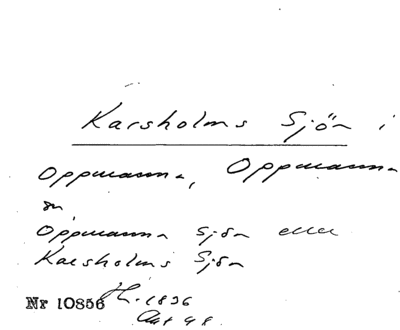 Karsholms Sjön i
Oppmanna, Oppmanna
Oppmanna Sjön eller
Karsholms Sjön
Nr 10856 1836